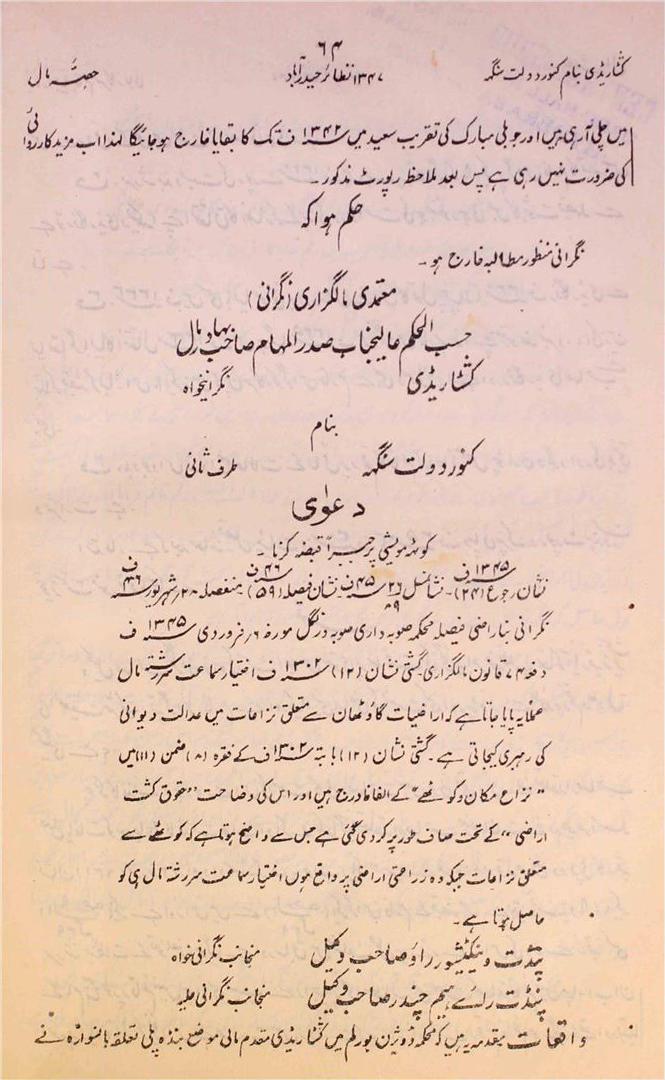 ۶۴
کشٹا ریڈی بنام کنور دولت سنگہ
۱۳۴۷ نظائر حیدرآباد
حصہ مال
میں چلی آرہی ہیں اور جوبلی مبارک کی تقریب سعید میں ۱۳۴۲ ف تک کا بقایا خارج ہو جائیگا لہذا اب مزید کارروائی
کی ضرورت نہیں رہی ہے پس بعد ملاحظہ رپورٹ مذکور۔
حکم ہوا کہ
نگرانی منظور مطالبہ خارج ہو۔
معتمدی مالگزاری (نگرانی)
حسب الحکم عالیجناب صدر المہام صاحب بہادر مال
کشٹا ریڈی نگرانیخواہ
بنام
کنور دولت سنگہ طرف ثانی
دعویٰ
کوٹھہ مویشی پر جبراً قبضہ کرنا۔
نشان رجوع (۲۴) ۱۳۴۵ ف۔ نشان مثل ۲۶/۸۹ ۴۵ ف نشان فیصلہ (۵۹) ۴۶ ف منفصلہ ۲۸ شہریور ۴۶ ف
نگرانی بناراضی فیصلہ محکمہ صوبہ داری صوبہ ورنگل مورخہ ۶ فروردی ۱۳۴۵ ف
دفعہ ۷۴ قانون مالگزاری گشتی نشان (۱۲) ۱۳۰۲ ف اختیار سماعت سررشتہ مال
عملاً یہ پایا جاتا ہے کہ اراضیات گاؤٹھان سے متعلق نزاعات میں عدالت دیوانی
کی رہبری کیجاتی ہے۔ گشتی نشان (۱۲) بابتہ ۱۳۰۲ ف کے فقرہ (۸) ضمن (۱۱) میں
"نزاع مکان و کوٹھے" کے الفاظ درج ہیں اور اس کی وضاحت "حقوق کشت
اراضی" کے تحت صاف طور پر کردی گئی ہے جس سے واضح ہوتا ہے کہ کوٹھے سے
متعلق نزاعات جبکہ وہ زراعتی اراضی پر واقع ہوں اختیار سماعت سررشتہ مال ہی کو
حاصل ہوتا ہے۔
پنڈت وینکٹیشور راؤ صاحب وکیل منجانب نگرانی خواہ
پنڈت رائے ہیم چندر صاحب وکیل منجانب نگرانی علیہ
واقعات مقدمہ یہ ہیں کہ محکمہ ڈویژن بورلم میں کشٹا ریڈی مقدم مالی موضع بنڈہ پلی تعلقہ بانسواڑہ نے